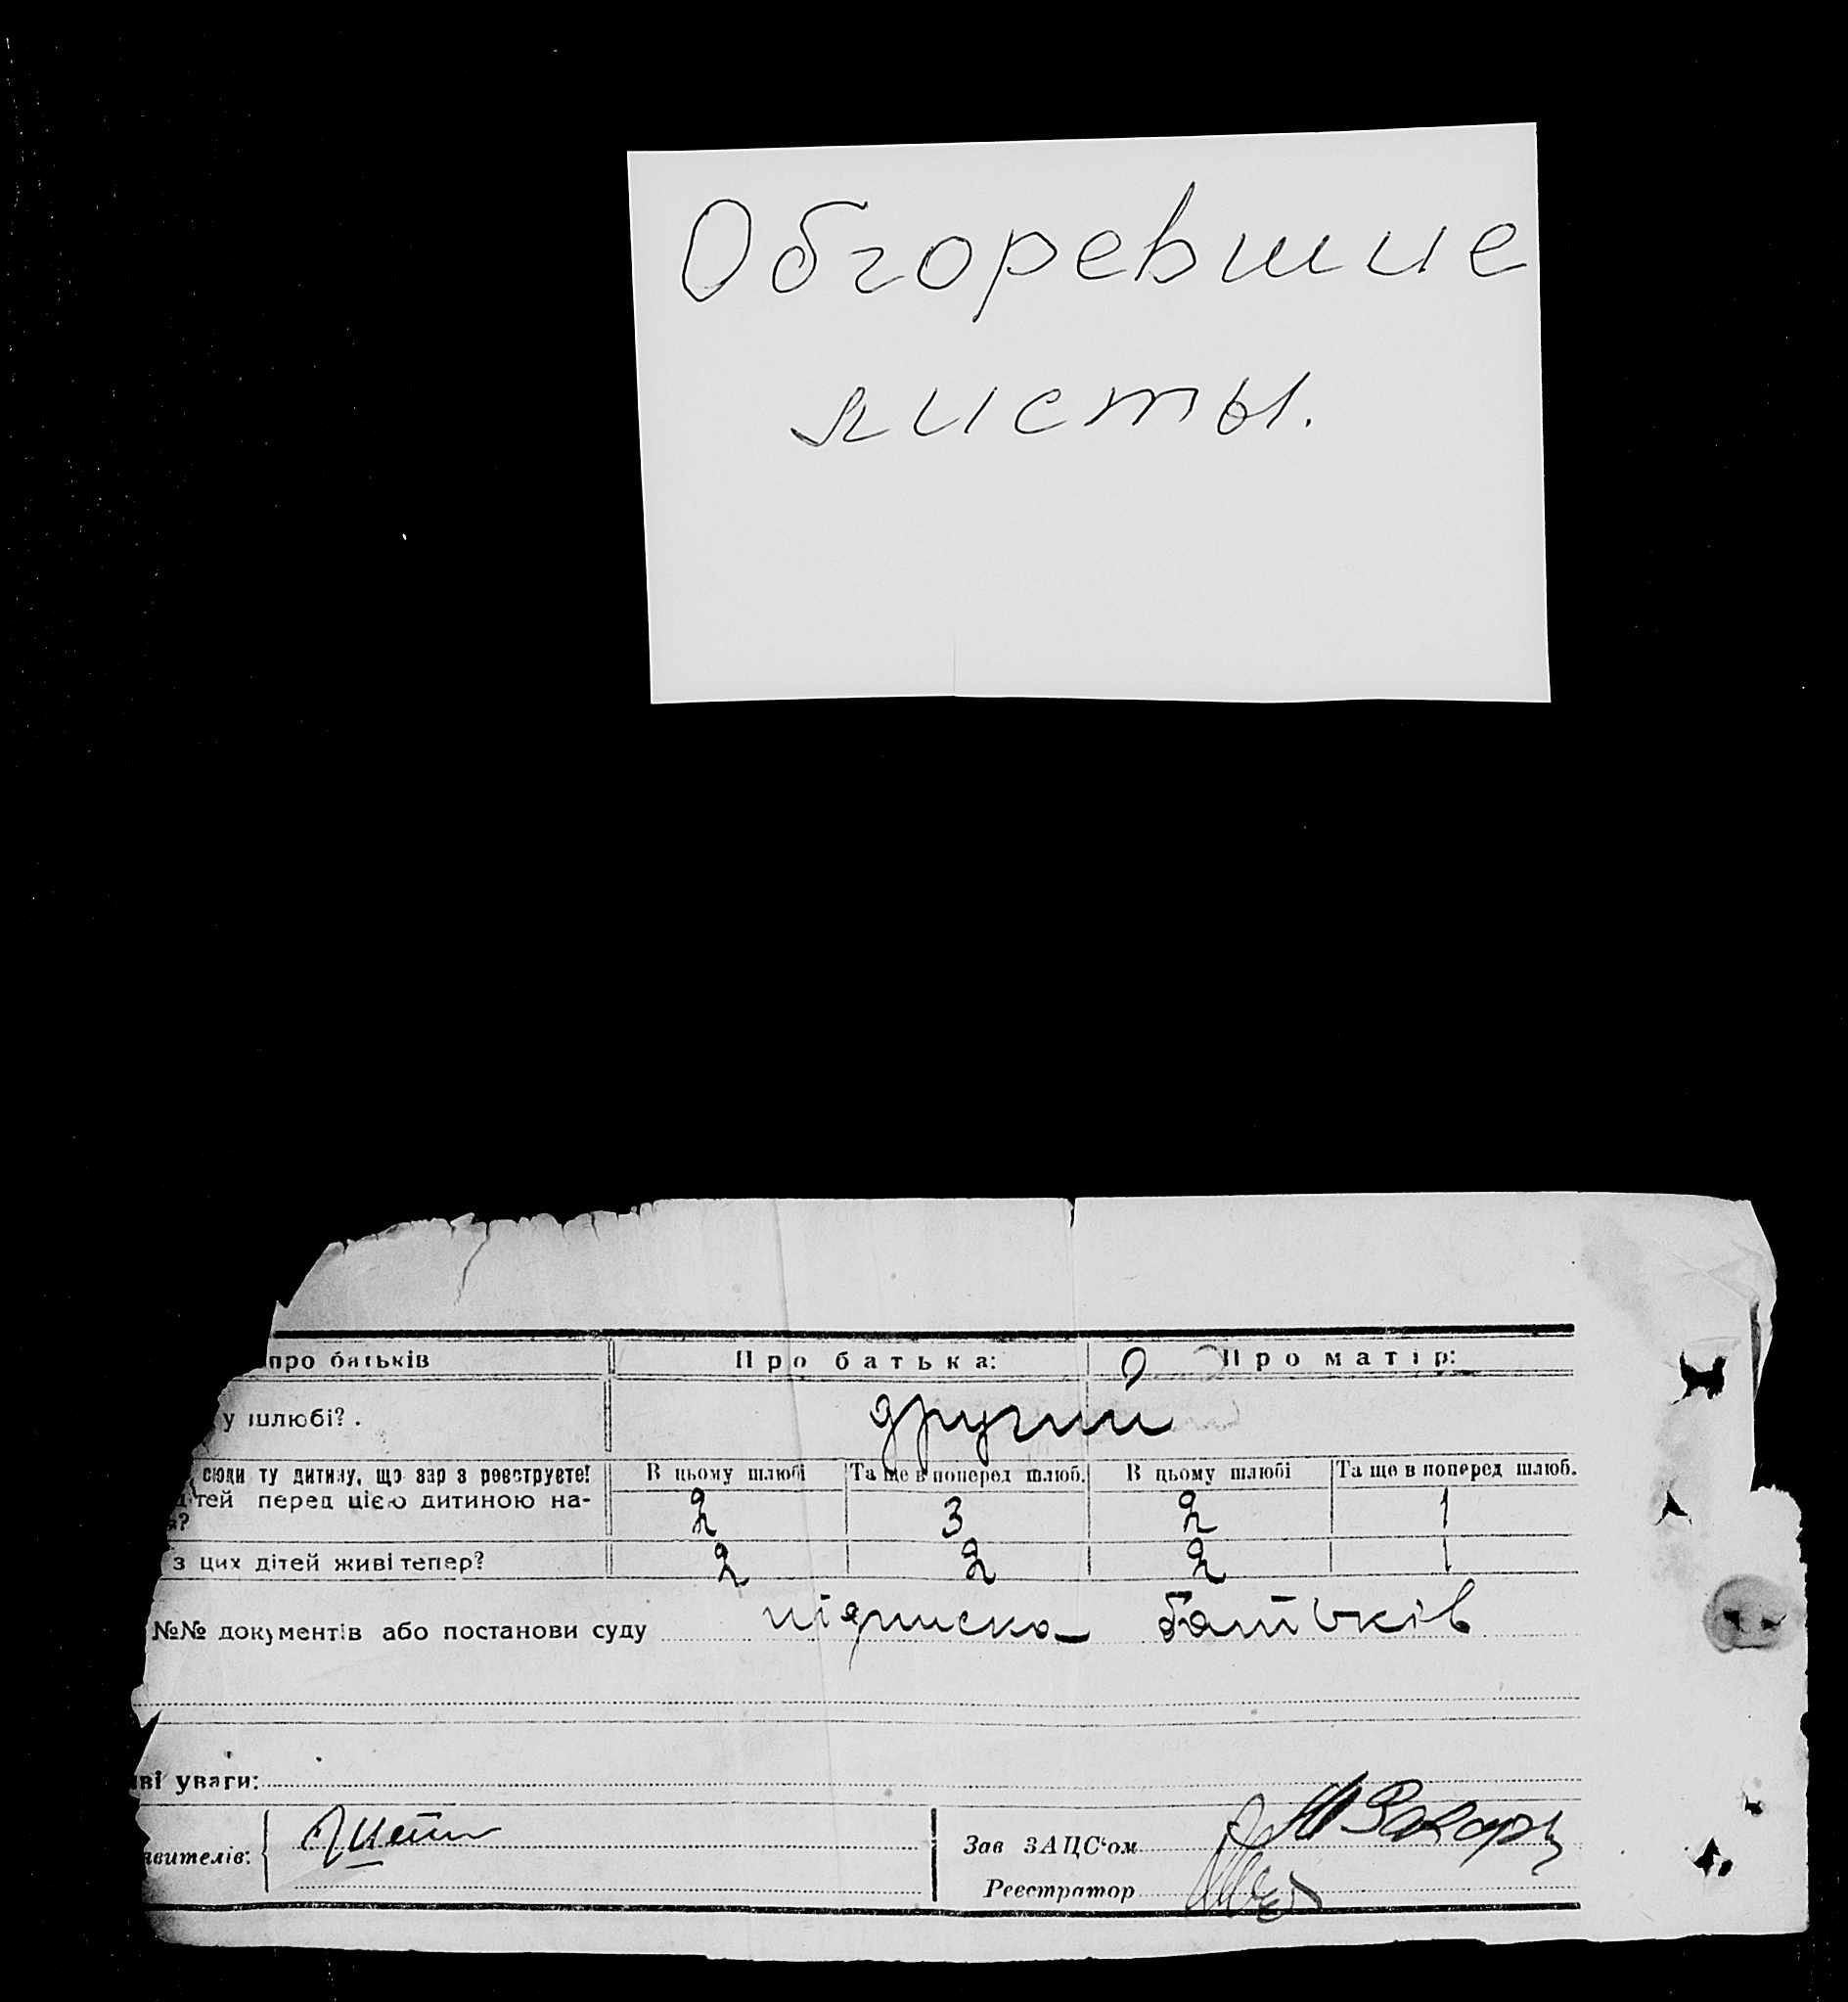 Обгоревшие
листы.
про батьків Про батька: Про матір:
у шлюбі? . другий
сюди ту дитину, що зар з реєструєте! В цьому шлюбі Та ще в поперед шлюб. В цьому шлюбі Та ще в поперед шлюб.
тей перед цією дитиною на- 2 3 2 1
а?
з цих дітей живі тепер? 2 2 2 1
№№ документів або постанови суду підписка батьків
ві уваги:
явителів:
Зав ЗАЦС'ом
Реєстратор